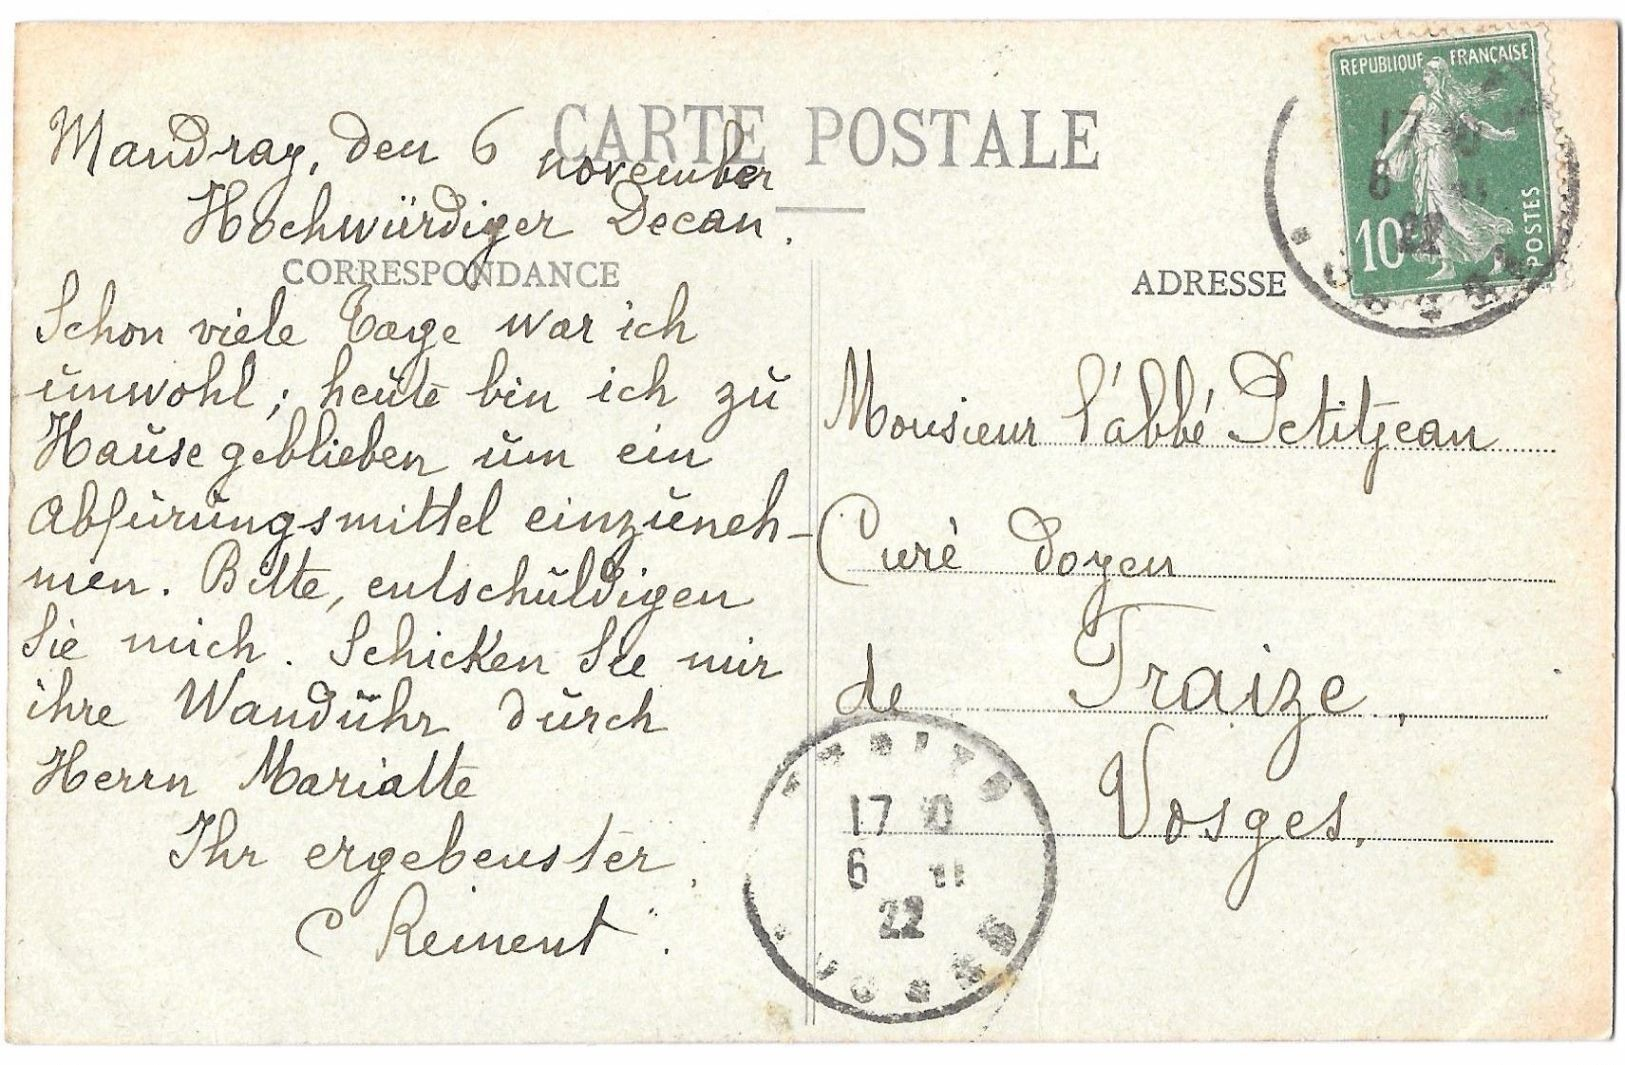 CARTE POSTALE
Mandray, den 6 november
Hochwürdiger Decan.
CORRESPONDANCE
Schon viele Tage war ich
ŭnwohl; heŭte bin ich zŭ
Haŭse geblieben ŭm ein
Abfŭrŭngsmittel einzŭneh-
men. Bitte, entschŭldigen
Sie mich. Schicken Sie mir
ihre Wandŭhr dŭrch
Herrn Marialte
Ihr ergebenster,
C Reinent.
REPUBLIQUE FRANÇAISE
10
POSTES
17
6 11
22
ADRESSE
Monsieur l'abbé Petitjean
Curé doyen
de Fraize,
Vosges.
17
6 11
22